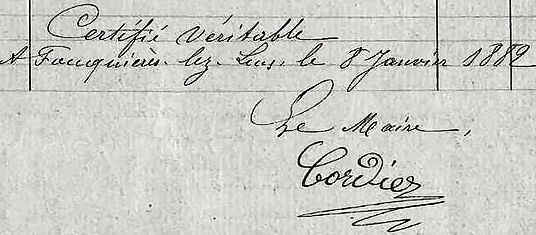 Certifié véritable
A Fouquières-lez-Lens, le 8 Janvier 1882
Le Maire,
Cordier